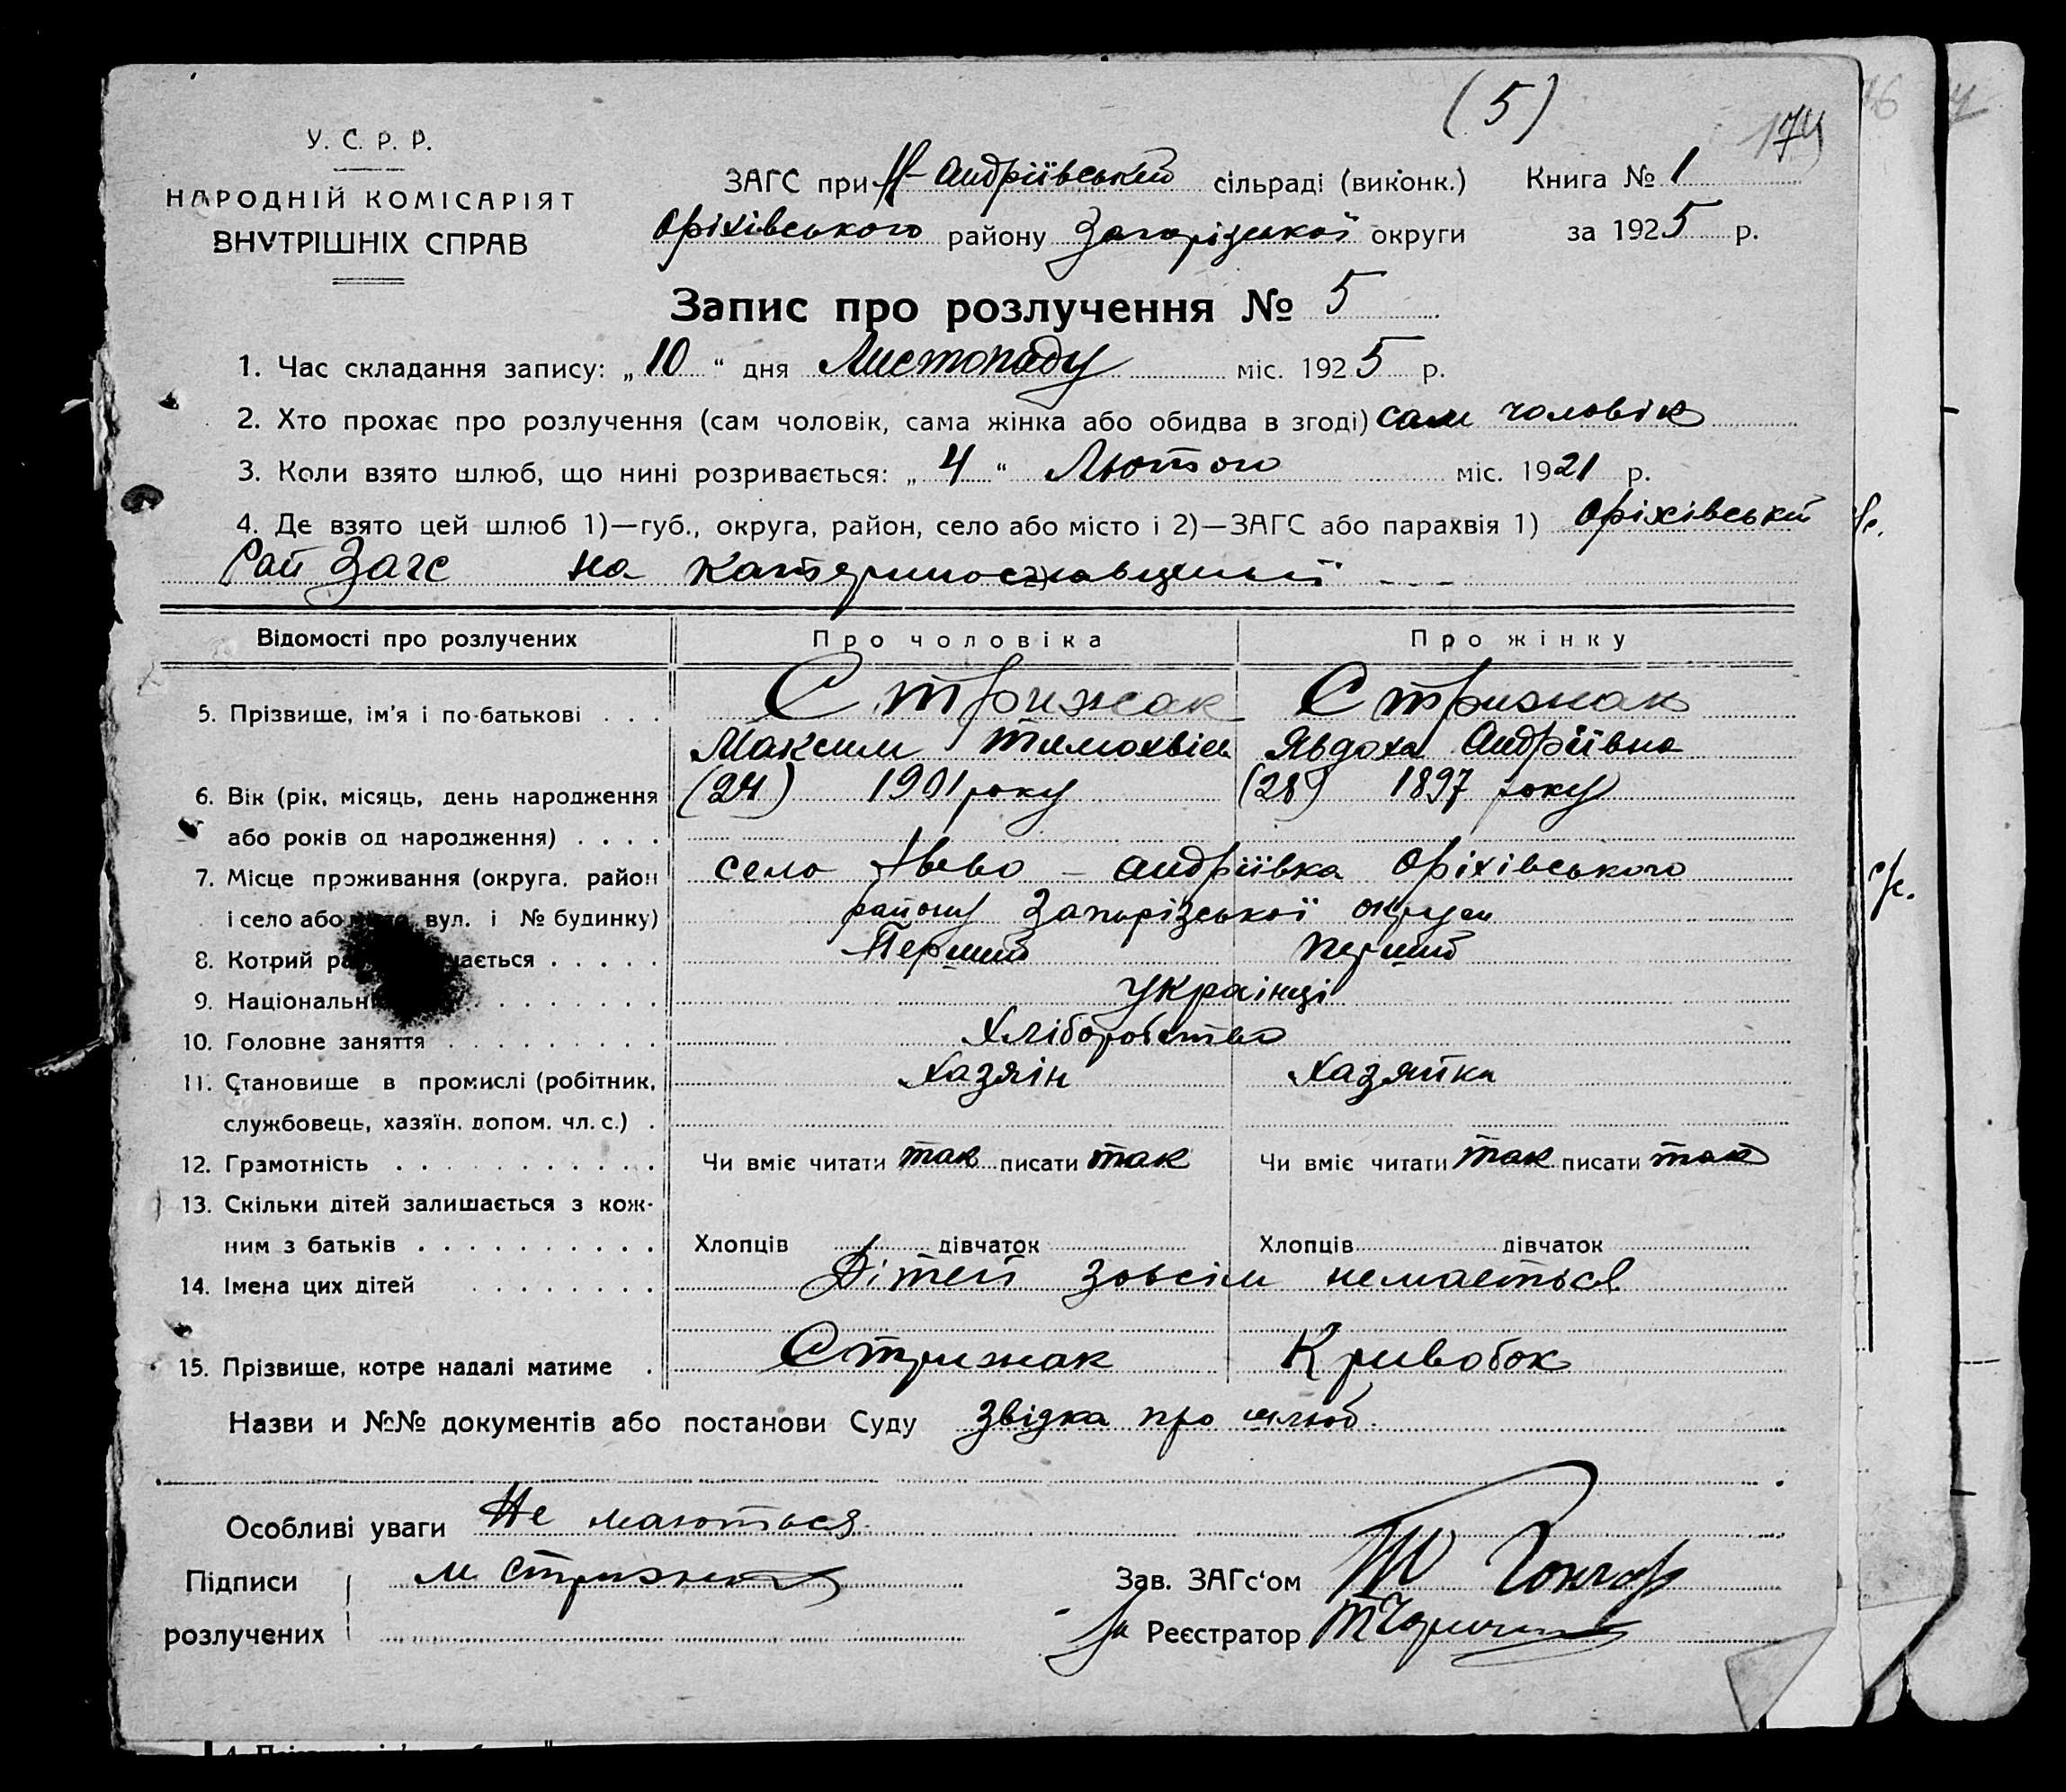 (5)
174
У. С. Р. Р.
НАРОДНІЙ КОМІСАРІЯТ
ВНУТРІШНІХ СПРАВ
ЗАГС при Н-Андріївській сільраді (виконк.) Книга № 1
Оріхівського району Запорізької округи за 1925 р.
Запис про розлучення № 5
1. Час складання запису: „10“ дня Листопаду міс. 1925 р.
2. Хто прохає про розлучення (сам чоловік, сама жінка або обидва в згоді) сам чоловік
3. Коли взято шлюб, що нині розривається: „4“ Лютого міс. 1921 р.
4. Де взято цей шлюб 1)—губ., округа, район, село або місто і 2)—ЗАГС або парахвія 1) Оріхівський
Рай Загс на Катеринославщині
Відомості про розлучених Про чоловіка Про жінку
5. Прізвище, ім'я і по-батькові . . . Стрижак Стрижак
Максим Тимохвієв Явдоха Андріївна
6. Вік (рік, місяць, день народження (24) 1901 року (28) 1897 року
або років од народження) . . . .
7. Місце проживання (округа, район село Ново-Андріївка Оріхівського
і село або вул. і № будинку) району Запорізької округи
8. Котрий Перший перший
9. Національн українці
10. Головне заняття . . . . . . . . . Хліборобство
11. Становище в промислі (робітник, Хазяін Хазяйка
службовець, хазяїн, допом. чл. с.) .
12. Грамотність . . . . . . . . . . . Чи вміє читати так писати так Чи вміє читати так писати так
13. Скільки дітей залишається з кож-
ним з батьків . . . . . . . . . . Хлопців дівчаток Хлопців дівчаток
14. Імена цих дітей . . . . . . . . Дітей зовсім немається
15. Прізвище, котре надалі матиме . Стрижак Кривобок
Назви и №№ документів або постанови Суду Звідка про шлюб.
Особливі уваги Не маються.
Підписи М Стрижак Зав. ЗАГс'ом Гончар
розлучених Реєстратор